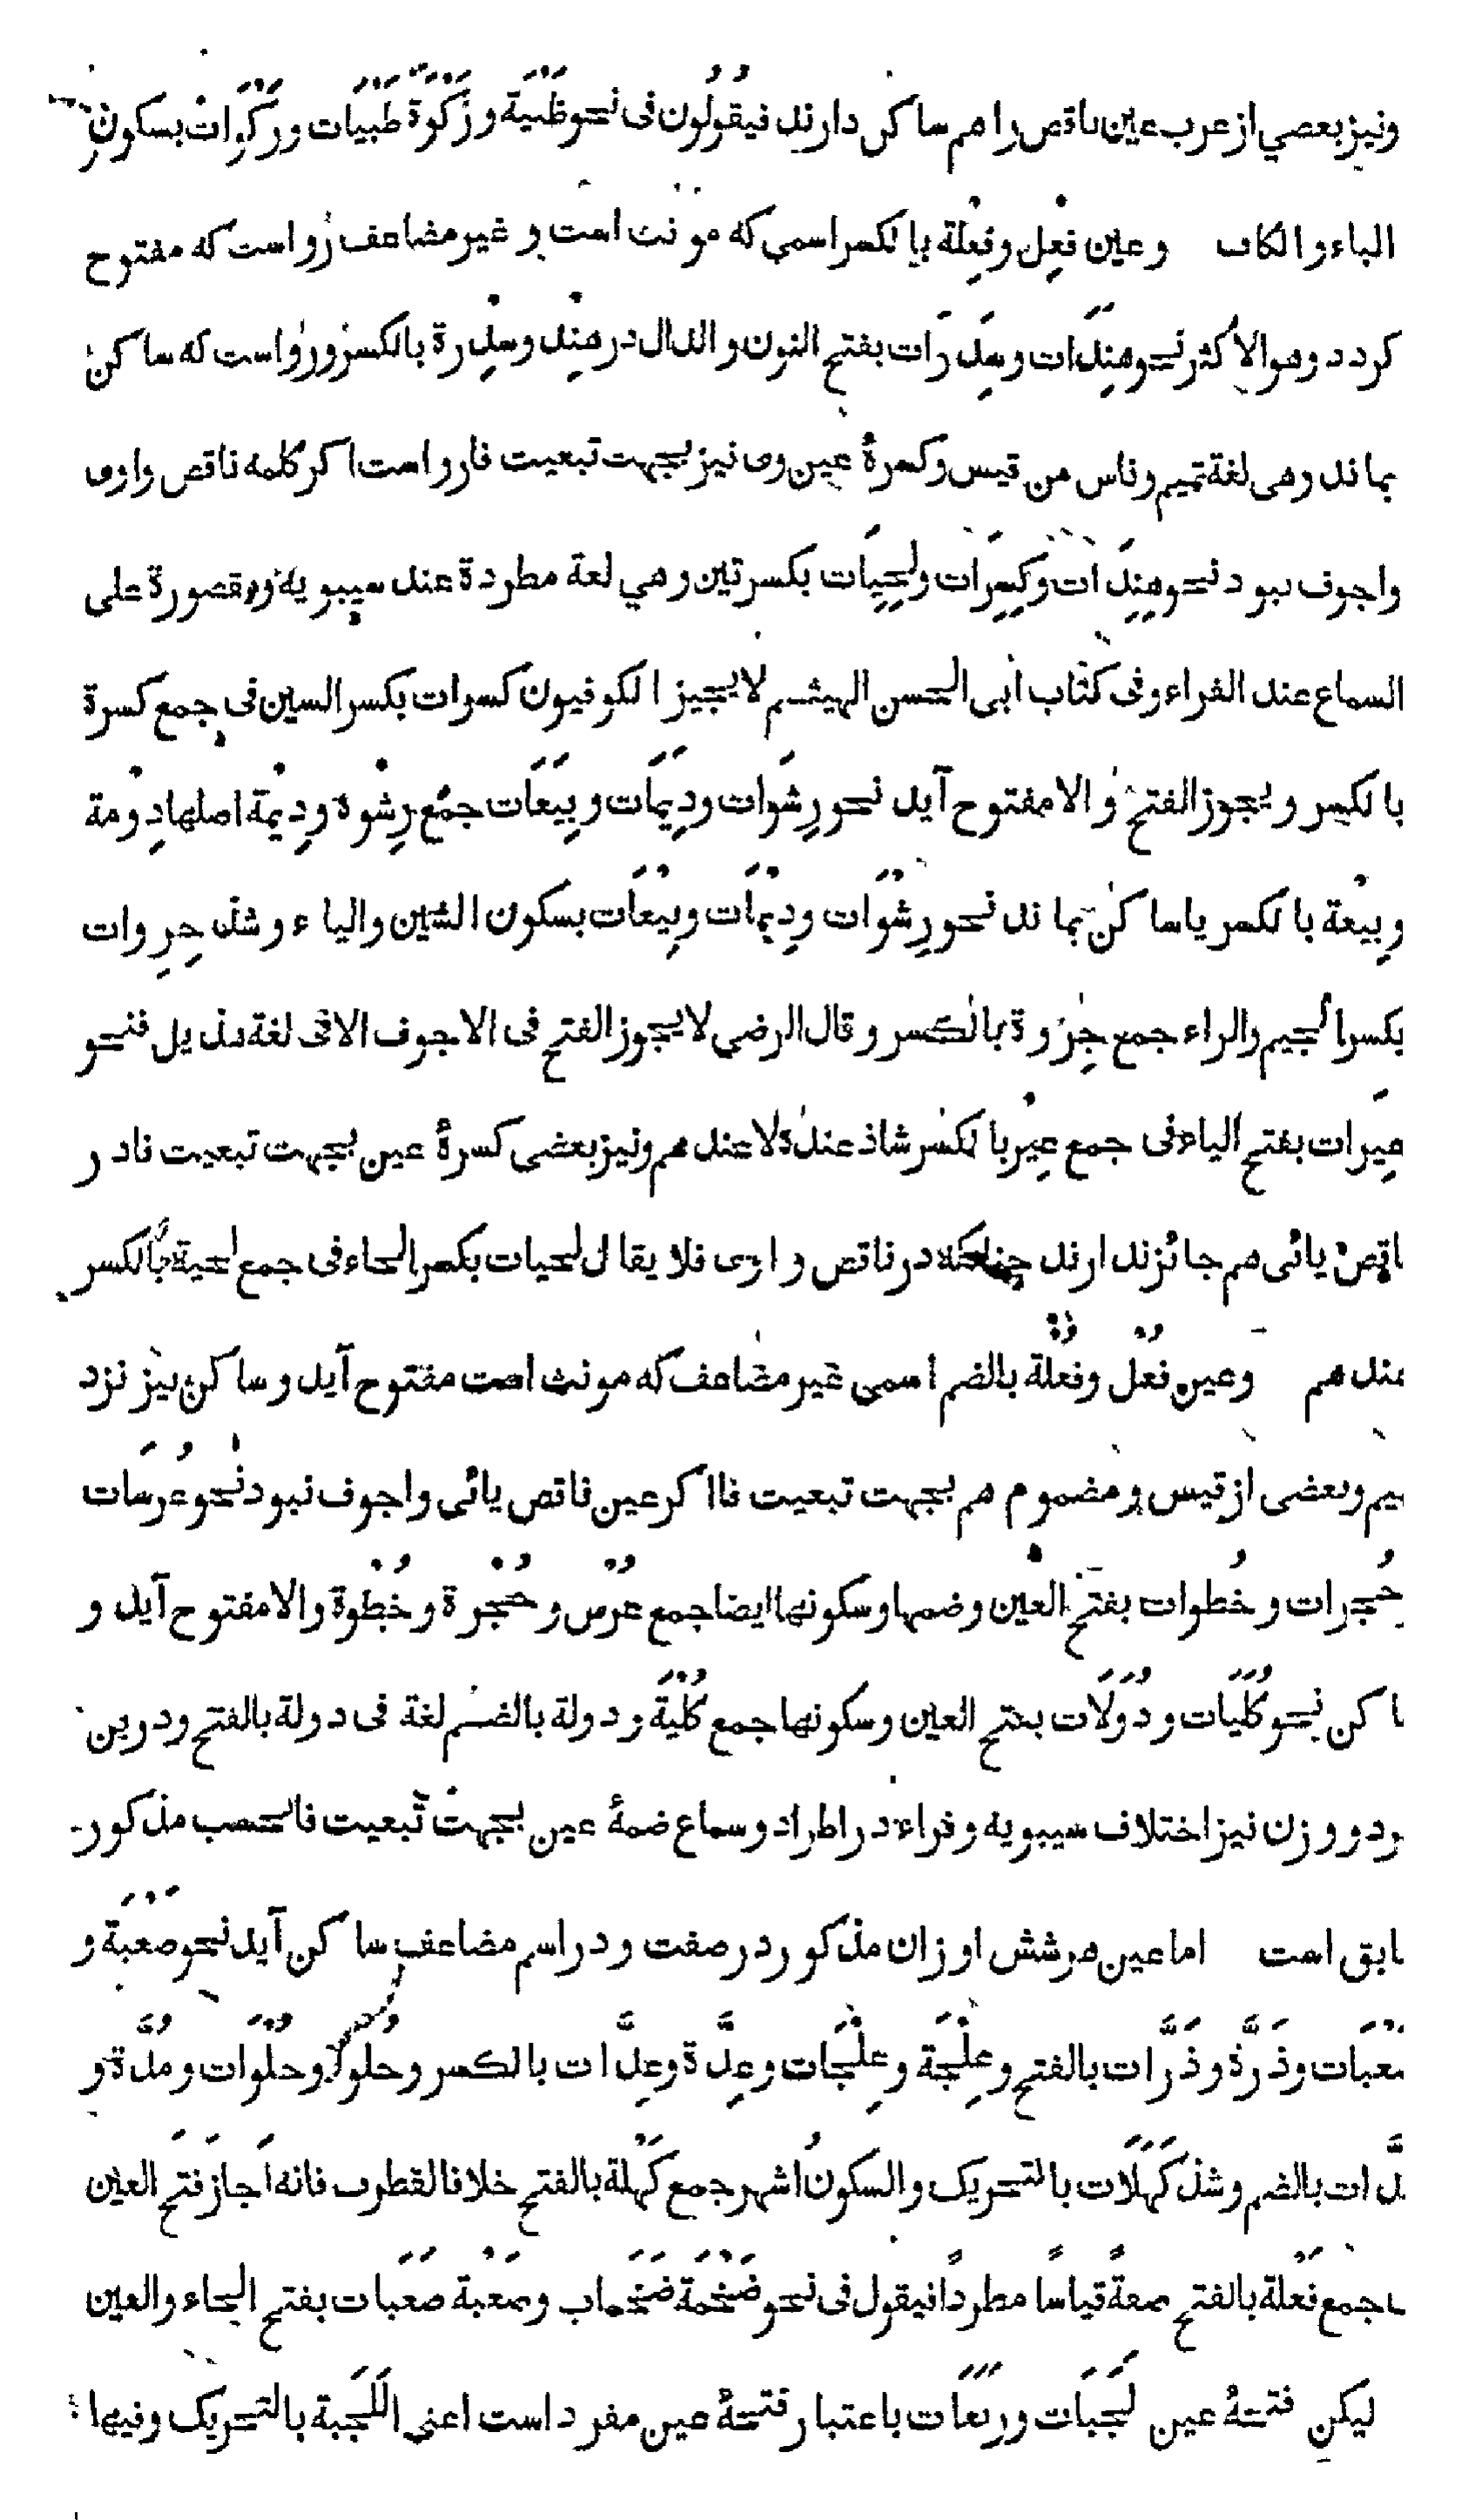 ونیز بعضي از عرب عین ناقص را هم ساکن دارند فیقولون فی نحو ظَبْیَة و زَکْوَة ظبیات ورکوات بسکون
الباء والکاف وعین فِعْل وفِعْلة بالکسر اسمی که مونث است و غیر مضاعف رواست که مفتوح
کردد وهو الاکثر نحو هِنَدَات وسِدَرَات بفتح النون والدال در هِنْد وسِدْرة بالکسر ورواست که ساکن
بماند وهی لغة تمیم وناس من قیس وکسرهٔ عین وی نیز بجهت تبعیت فا رواست اکر کلمه ناقص واوی
واجوف نبود نحو هِنِدَات وکِسِرَات ولِحِیَات بکسرتین وهي لغة مطردة عند سیبویه ومقصورة علی
السماع عند الفراء وفی کتاب ابی الحسن الهیثم لا یجیز الکوفیون کسرات بکسر السین فی جمع کسرة
بالکسر ویجوز الفتح والا مفتوح آید نحو رِشَوات ودِیَمَات وبِیَعَات جمع رِشْوة ودِیْمَة اصلها دِوْمة
وبِیْعة بالکسر یا ساکن بماند نحو رِشْوَات ودِیْمَات وبِیْعَات بسکون الشین والیاء وشذ جِرِوات
بکسر الجیم والراء جمع جِرْوة بالکسر وقال الرضی لا یجوز الفتح فی الاجوف الا فی لغة هذیل فنحو
عِیَرات بفتح الیاء فی جمع عِیْر بالکسر شاذ عنده لا عندهم ونیز بعضی کسرهٔ عین بجهت تبعیت نادر
ناقص یائی هم جائز ندارند چنانکه در ناقص واوی فلا یقال لحیات بکسر الحاء فی جمع لحیة بالکسر
عندهم وعین فُعْل وفُعْلة بالضم اسمی غیر مضاعف که مونث است مفتوح آید وساکن نیز نزد
تمیم وبعضی از قیس ومضموم هم بجهت تبعیت فا اکر عین ناقص یائی واجوف نبود نحو عُرُسَات
وحُجرات وخُطوات بفتح العین وضمها وسکونها ایضا جمع عُرْس وحُجْرة وخُطْوة والا مفتوح آید و
ساکن نحو کُلَیَات ودُوَلَات بفتح العین وسکونها جمع کُلْیَة ودولة بالضم لغة فی دولة بالفتح ودرین
هردو وزن نیز اختلاف سیبویه وفراء در اطراد وسماع ضمهٔ عین بجهت تبعیت فا بحسب مذکور
سابق است اما عین هر شش اوزان مذکور در صفت ودر اسم مضاعف ساکن آید نحو صَعْبَة و
صَعْبَات وذَرَّة وذَرَّات بالفتح وعِلْجَة وعِلْجَات وعِدَّة وعِدَّات بالکسر وحُلْوَة وحُلْوَات ومُدَّة و
مُدَّات بالضم وشذ کَهَلَات بالتحریک والسکون اشهر جمع کَهْلَة بالفتح خلافا لقطرب فانه اَجازَ فتحَ العین
فی جمع فَعْلة بالفتح صفةً قیاسًا مطردًا فیقول فی نحو ضَخْمَة ضَخَمات وصَعْبة صَعَبات بفتح الخاء والعین
لیکن فتحهٔ عین لَجَبَات ورَبَعَات باعتبار فتحهٔ عین مفرد است اعنی اللَجَبة بالتحریک وفیها